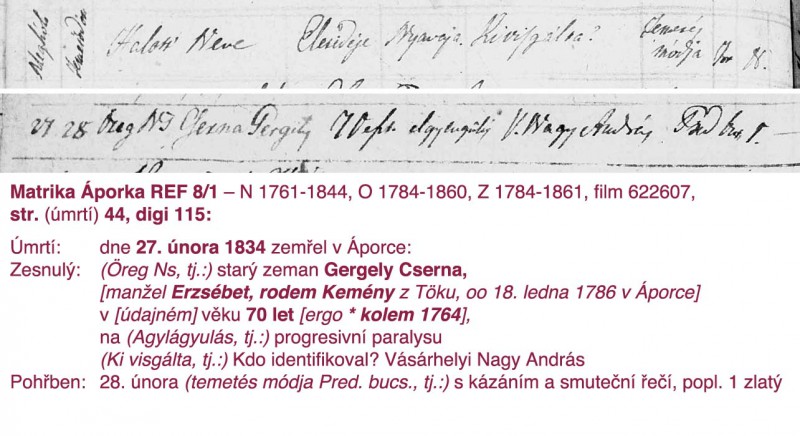 Meghólt
Temettetett
Halott Neve Élete ideje Nyavaja. Ki visgálta? Temetés módja for X.
27 28 Öreg NS Cserna Gergely 70 eszt. elgyengülés V. Nagy András Pred. buc. 1. –
Matrika Áporka REF 8/1 – N 1761-1844, O 1784-1860, Z 1784-1861, film 622607,
str. (úmrtí) 44, digi 115:
Úmrtí: dne 27. února 1834 zemřel v Áporce:
Zesnulý: (Öreg Ns, tj.:) starý zeman Gergely Cserna,
[manžel Erzsébet, rodem Kemény z Töku, oo 18. ledna 1786 v Áporce]
v [údajném] věku 70 let [ergo * kolem 1764],
na (Agylágyulás, tj.:) progresivní paralysu
(Ki visgálta, tj.:) Kdo identifikoval? Vásárhelyi Nagy András
Pohřben: 28. února (temetés módja Pred. bucs., tj.:) s kázáním a smuteční řečí, popl. 1 zlatý